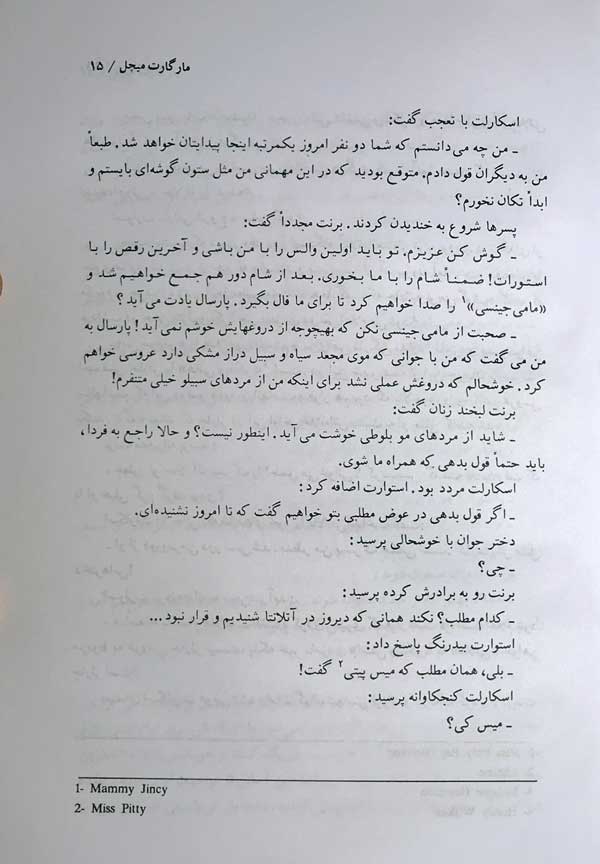 مارگارت میچل / ۱۵
اسکارلت با تعجب گفت:
ـ من چه می‌دانستم که شما دو نفر امروز یکمرتبه اینجا پیدایتان خواهد شد. طبعاً
من به دیگران قول دادم. متوقع بودید که در این مهمانی من مثل ستون گوشه‌ای بایستم و
ابداً تکان نخورم؟
پسرها شروع به خندیدن کردند. برنت مجدداً گفت:
ـ گوش کن عزیزم. تو باید اولین والس را با من باشی و آخرین رقص را با
استورات! ضمناً شام را با ما بخوری. بعد از شام دور هم جمع خواهیم شد و
«مامی‌جینسی»۱ را صدا خواهیم کرد تا برای ما فال بگیرد. پارسال یادت می‌آید؟
ـ صحبت از مامی‌جینسی نکن که بهیچوجه از دروغهایش خوشم نمی‌آید! پارسال به
من می‌گفت که من با جوانی که موی مجعد سیاه و سبیل دراز مشکی دارد عروسی خواهم
کرد. خوشحالم که دروغش عملی نشد برای اینکه من از مردهای سبیلو خیلی متنفرم!
برنت لبخند زنان گفت:
ـ شاید از مردهای مو بلوطی خوشت می‌آید. اینطور نیست؟ و حالا راجع به فردا،
باید حتماً قول بدهی که همراه ما شوی.
اسکارلت مردد بود. استوارت اضافه کرد:
ـ اگر قول بدهی در عوض مطلبی بتو خواهیم گفت که تا امروز نشنیده‌ای.
دختر جوان با خوشحالی پرسید:
ـ چی؟
برنت رو به برادرش کرده پرسید:
ـ کدام مطلب؟ نکند همانی که دیروز در آتلانتا شنیدیم و قرار نبود...
استوارت بیدرنگ پاسخ داد:
ـ بلی، همان مطلب که میس پیتی۲ گفت!
اسکارلت کنجکاوانه پرسید:
ـ میس کی؟
1- Mammy Jincy
2- Miss Pitty